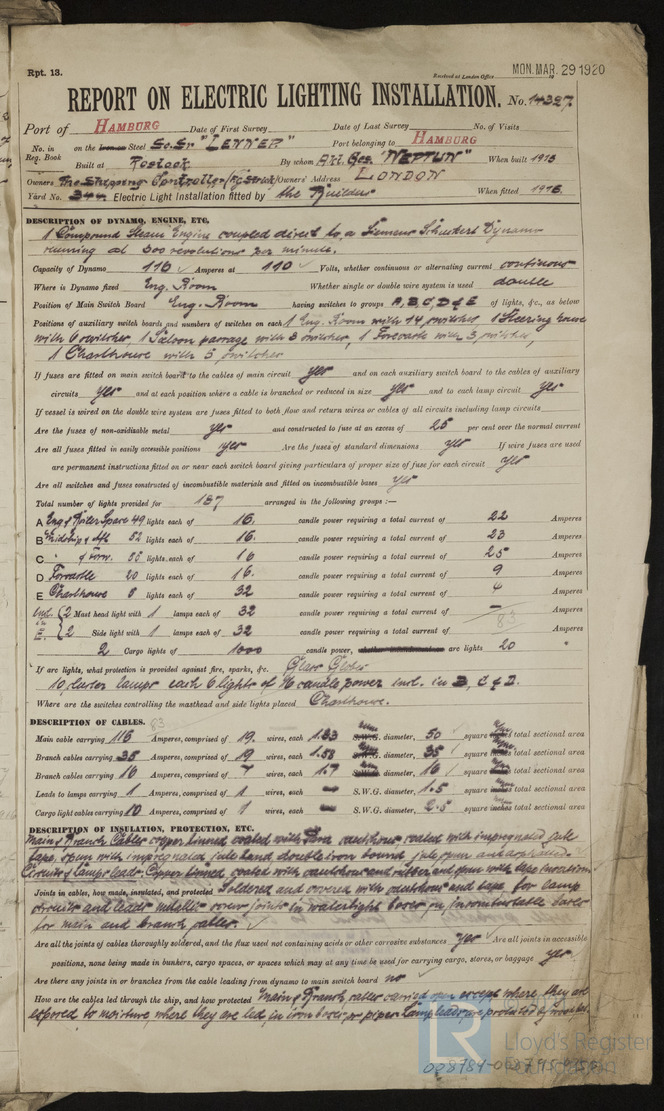 Rpt. 13.
Received at London Office
MON. MAR. 29 1920
REPORT ON ELECTRIC LIGHTING INSTALLATION. No. 14327
Port of HAMBURG Date of First Survey Date of Last Survey No. of Visits
No. in Reg. Book on the Steel Sc. Sr "LENNEP" Port belonging to HAMBURG
Built at Rostock By whom Akt. Ges. "NEPTUN" When built 1915
Owners The Shipping Controller Owners' Address LONDON
Yard No. Electric Light Installation fitted by the Builders When fitted 1915.
DESCRIPTION OF DYNAMO, ENGINE, ETC.
1 Compound Steam Engine coupled direct to a Siemens Schuckert Dynamo
running at 300 revolutions per minute.
Capacity of Dynamo 116 Amperes at 110 Volts, whether continuous or alternating current continuous
Where is Dynamo fixed Eng. Room Whether single or double wire system is used double
Position of Main Switch Board Eng. Room having switches to groups A, B, C, D & E of lights, &c., as below
Positions of auxiliary switch boards and numbers of switches on each 1 Eng. Room with 14 switches 1 Steering house
with 6 switches, 1 Saloon passage with 3 switches, 1 Forecastle with 3 switches,
1 Charthouse with 5 switches
If fuses are fitted on main switch board to the cables of main circuit yes and on each auxiliary switch board to the cables of auxiliary
circuits yes and at each position where a cable is branched or reduced in size yes and to each lamp circuit yes
If vessel is wired on the double wire system are fuses fitted to both flow and return wires or cables of all circuits including lamp circuits
Are the fuses of non-oxidizable metal yes and constructed to fuse at an excess of 25 per cent over the normal current
Are all fuses fitted in easily accessible positions yes Are the fuses of standard dimensions yes If wire fuses are used
are permanent instructions fitted on or near each switch board giving particulars of proper size of fuse for each circuit yes
Are all switches and fuses constructed of incombustible materials and fitted on incombustible bases yes
Total number of lights provided for 187 arranged in the following groups :—
A Eng & Boiler Space 49 lights each of 16. candle power requiring a total current of 22 Amperes
B Midship & Aft 52 lights each of 16. candle power requiring a total current of 23 Amperes
C " & Forw. 56 lights each of 16 candle power requiring a total current of 25 Amperes
D Forcastle 20 lights each of 16. candle power requiring a total current of 9 Amperes
E Charthouse 8 lights each of 32 candle power requiring a total current of 4 Amperes
Incl. in E. 2 Mast head light with 1 lamps each of 32 candle power requiring a total current of — Amperes
2 Side light with 1 lamps each of 32 candle power requiring a total current of 83 Amperes
2 Cargo lights of 1000 candle power, arc lights 20 "
If arc lights, what protection is provided against fire, sparks, &c. Glass Globes
10 cluster lamps each 6 lights of 16 candle power incl. in B, C & D.
Where are the switches controlling the masthead and side lights placed Charthouse.
DESCRIPTION OF CABLES.
83
Main cable carrying 116 Amperes, comprised of 19. wires, each 1.83 S.W.G. diameter, 50 square total sectional area
Branch cables carrying 35 Amperes, comprised of 19 wires, each 1.53 S.W.G. diameter, 35 square total sectional area
Branch cables carrying 16 Amperes, comprised of 7 wires, each 1.7 S.W.G. diameter, 16 square total sectional area
Leads to lamps carrying 1 Amperes, comprised of 1 wires, each — S.W.G. diameter, 1.5 square total sectional area
Cargo light cables carrying 10 Amperes, comprised of 1 wires, each — S.W.G. diameter, 2.5 square total sectional area
DESCRIPTION OF INSULATION, PROTECTION, ETC.
Main & Branch Cables copper tinned coated with Para caoutchouc coated with impregnated jute
tape, spun with impregnated jute band, double iron bound, jute spun and asphalted.
Circuits & lamps leads: Copper tinned, coated with caoutchouc and rubber and spun with
Joints in cables, how made, insulated, and protected Soldered and covered with caoutchouc and tape, for lamp
circuits and leads metallic screw joints in watertight boxes on incombustible bases
for main and branch cables.
Are all the joints of cables thoroughly soldered, and the flux used not containing acids or other corrosive substances yes Are all joints in accessible
positions, none being made in bunkers, cargo spaces, or spaces which may at any time be used for carrying cargo, stores, or baggage yes
Are there any joints in or branches from the cable leading from dynamo to main switch board no
How are the cables led through the ship, and how protected Main & Branch cables carried open except where they are
exposed to moisture, where they are led in iron boxes or pipes lamp leads are protected by
© 2021
LR
Lloyd's Register
Foundation
008784-008795-0256